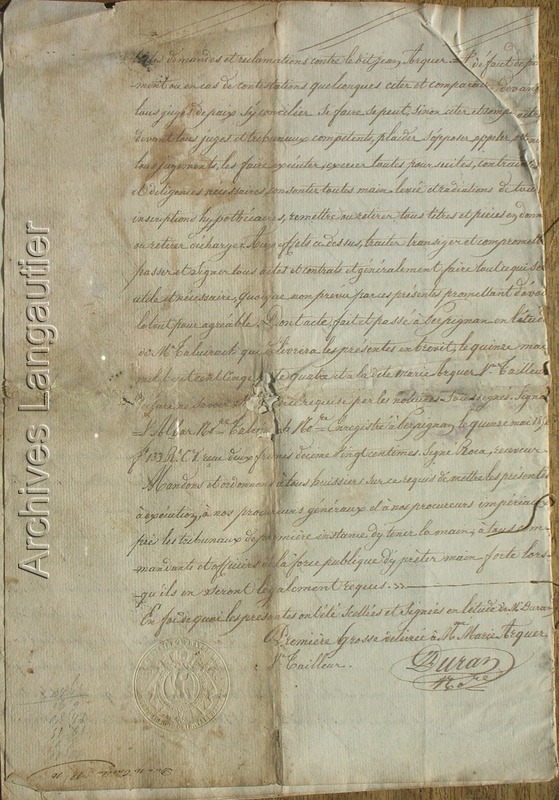 demandes et réclamations contre ledit Jean Arquer à défaut de pai
ment ou en cas de contestations quelconques citer et comparaitre devant
tous juges de paix s'y concilier se faire se peut, sinon citer et
devant tous juges et tribunaux compétents, plaider s'opposer appeler
tous jugements, les faire exécuter, exercer toutes poursuites, contraintes
et diligences nécessaires, consentir toutes main levée et radiations de tou
inscriptions hypothécaires, remettre ou retirer tous titres et pièces en donner
ou retirer décharge. Aux effets ci dessus, traiter transiger et compromett
passer et signer tous actes et contrats et généralement, faire tout ce qui
utile et nécessaire, quoique non prévu par ces présentes promettant d'avoi
le tout pour agréable, Dont acte, fait et passé à Perpignan en l'étude
de Me qui délivrera les présentes en brevet, le quinze mai
mil huit cent cinq quatre et a la dite Marie Arquer Ve Tailleur
requise par les notaires soussignés. Signé
Enregistré à Perpignan le quinze mai
fo 133 reçu deux francs décime vingt centimes. Signé Roca, receveur
Mandons et ordonnons à tous huissiers sur ce requis de mettre les présentes
à exécution, à nos procureurs généraux et à nos procureurs impériaux
près les tribunaux de première instance d'y tenir la main, à tous com
mandants et officiers de la force publique d'y prêter main forte lors
qu'ils en seront légalement requis.
En foi de quoi les présentes ont été scellées et signées en l'étude de Me Duran
Première grosse délivrée à Me Marie Arquer
Ve Tailleur.
Duran
Nore
Archives Langautier